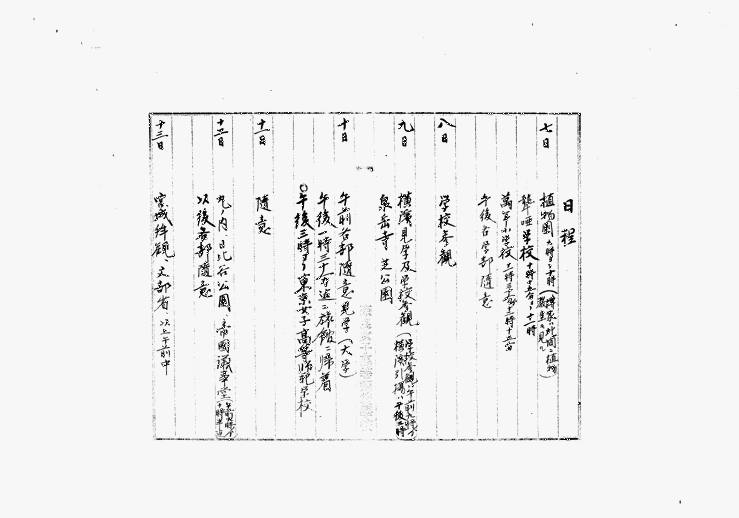 日程
七日 植物園 九時ヨリ十時(博家ハ此間ニ植物教生ヲ見ル)
聾唖学校 十時十五分ヨリ十一時
萬年小学校 十一時三十分ヨリ三時十五分
午後各学部随意
八日 学校参観
九日 横濱見学及学校参観(学校参観ハ午前九時ヨリ 横濱引揚ハ午後四時)
泉岳寺 芝公園
十日 午前各部随意見学(大学)
午後一時三十分迄ニ旅館ニ帰着
午後三時ヨリ東京女子高等師範学校
十一日 随意
十二日 丸ノ内、日比谷公園、帝國議事堂(午前九時ヨリ十時半迄)
以後各部随意
十三日 宮城拝観、文部省、以上午前中